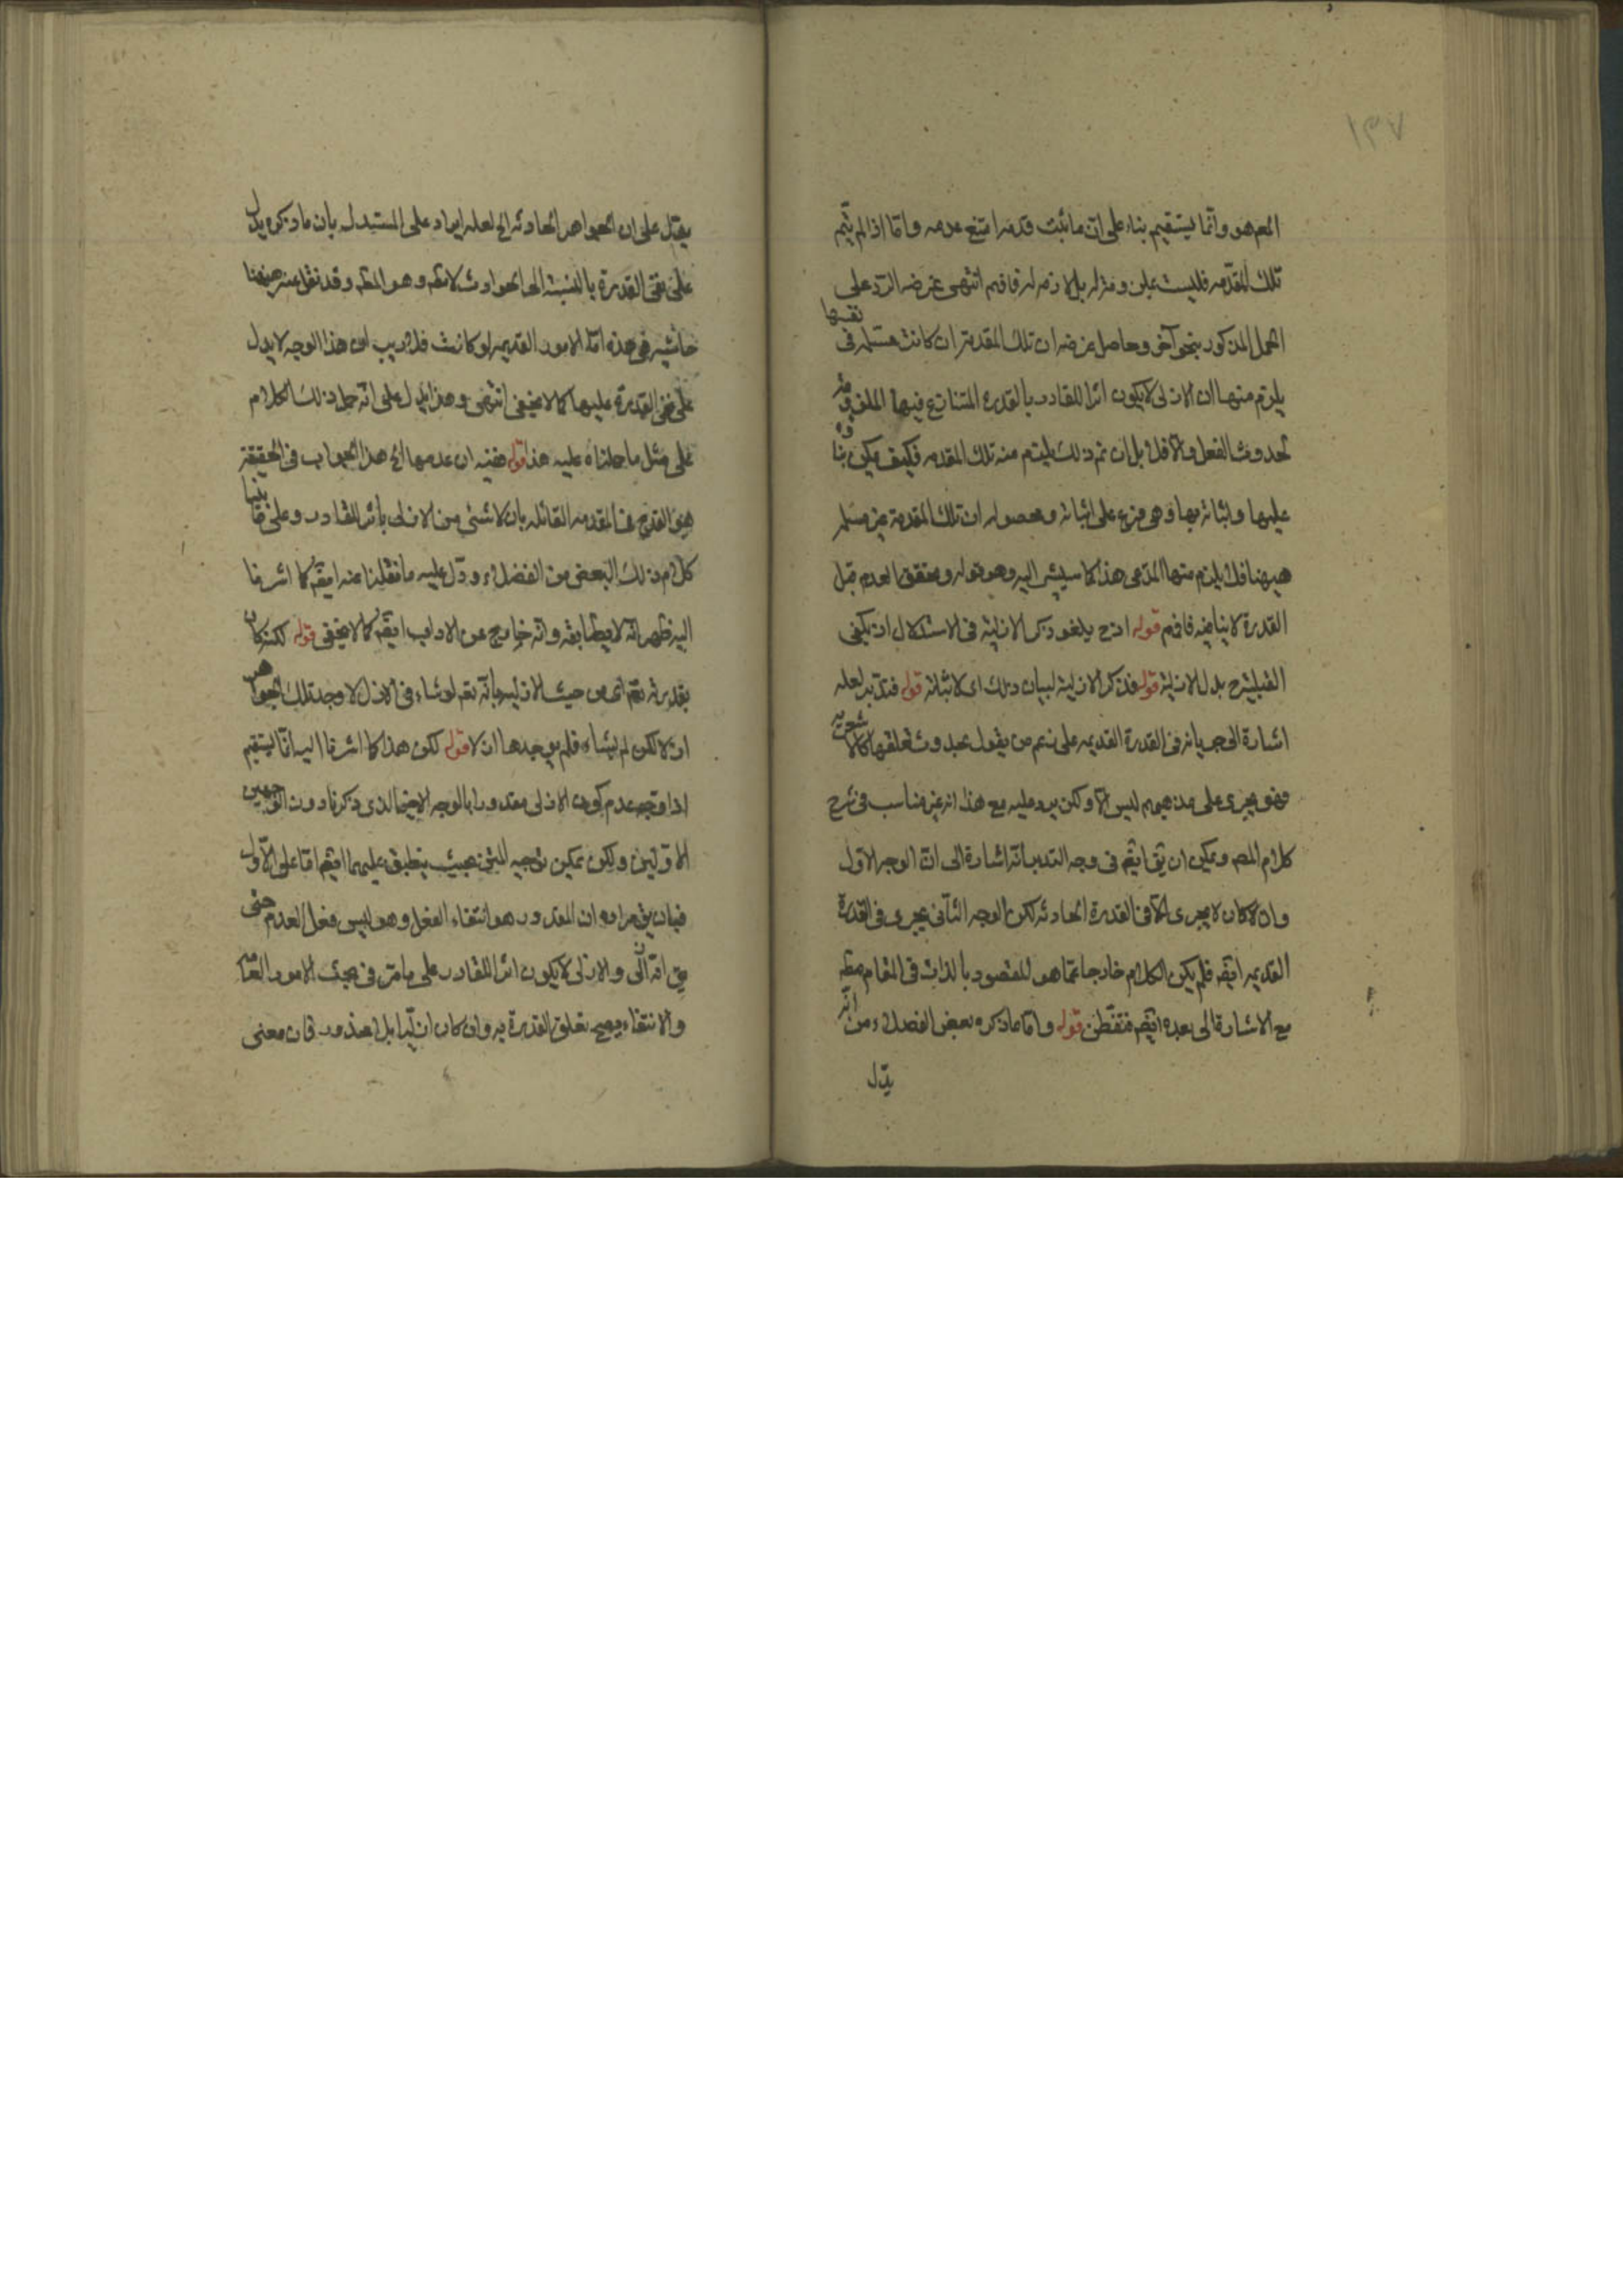 المعم هو وانما يستقيم بناء على ان ما ثبت قدمه امتنع عدمه واما اذا لم يتم
تلك المقدمه فليست بلزومه له بل لازمه له فافهم انتهى غرضه الرد على
الحمل المذكور بنحو آخر وحاصل غرضه ان تلك المقدمة ان كانت مسلمه فى نفسها
يلزم منها ان الازلى لا يكون اثرا للقادر بالقدرة المتنازع فيها
لحدوث الفعل والا فلا بل ان تم ذلك يلتم منه تلك المقدمه فكيف يمكن
عليها واثباته بها وهى فرع على اثباته ومحصوله ان تلك المقدمة غير مسلمه
هيهنا فلا يلزم منها المدعى هذا كما سيشير اليه وهو قوله وتحقق العدم قبل
القدرة لا ينافيه فافهم قوله اذ ح يلغو ذكر الازلية فى الاستدلال اذ يكفى
القبلية ح بدل الازلية قوله فذكر الازلية لبيان ذلك اى لاثباته قوله فتدبر لعله
اشارة الى جريانه فى القدرة القديمه على زعم من يقول بحدوث تعلقها كالاشعريه
فهو يجرى على مذهبهم ليس الا ولكن يرد عليه مع هذا انه غير مناسب فى شرح
كلام المصـ ويمكن ان يق ايضـ فى وجه التدبر انه اشارة الى ان الوجه الاول
وان كان لا يجرى الا فى القدرة الحادثه لكن الوجه الثانى يجرى فى القدرة
القديمه ايضـ فلم يكن الكلام خارجا عما هو المقصود بالذات فى المقام
مع الاشارة الى بعده ايضـ فتفطن قوله واما ما ذكره بعض الفضلاء من انه
يدل
على ان الجواهر الحادثه الخ لعله ايراد على المستدل بان ما ذكره يدل
على نفى القدرة بالنسبة الى الحوادث لا مطـ وهو المطـ وقد نقل عنه هيهنا
حاشيه فى هذه اما الامور القديمه لو كانت فلا ريب ان هذا الوجه لا يدل
على نفى القدرة عليها كما لا يخفى انتهى وهذا يدل على انه حمل ذلك الكلام
على مثل ما حملناه عليه هذا قوله ففيه ان عدمها الخ هذا الجواب فى الحقيقة
هو القدح فى المقدمه القائله بان لا شئ من الازلى باثر للقادر وعلى ما بينا
كلام ذلك البعض من الفضلاء ودل عليه ما نقلنا عنه ايضـ كما اشرنا
اليه ظهر انه لا يطابقه وانه خارج عن الاداب ايضـ كما لا يخفى قوله لكنه كان
بقدرته تعـ اى من حيث الازليه بانه تعـ لو شاء فى الازل لاوجد تلك الجواهر
ازلا لكن لم يشاء فلم يوجدها ازلا قوله لكن هذا كما اشرنا اليه انما يستقيم
اذا وجه عدم كون الازلى مقدورا بالوجه الاخير الذى ذكرنا دون الوجهين
الاولين ولكن يمكن توجيه المتن بحيث ينطبق عليهما ايضـ اما على الاول
فبان يق مراده ان المقدور هو انتفاء الفعل وهو ليس فعل العدم حتى
يق انه ازلى والازلى لا يكون اثرا للقادر على ما مر فى بحث الامور العامة
والانتفاء يصح تعلق القدرة به وان كان ازليا بل محذور فان معنى